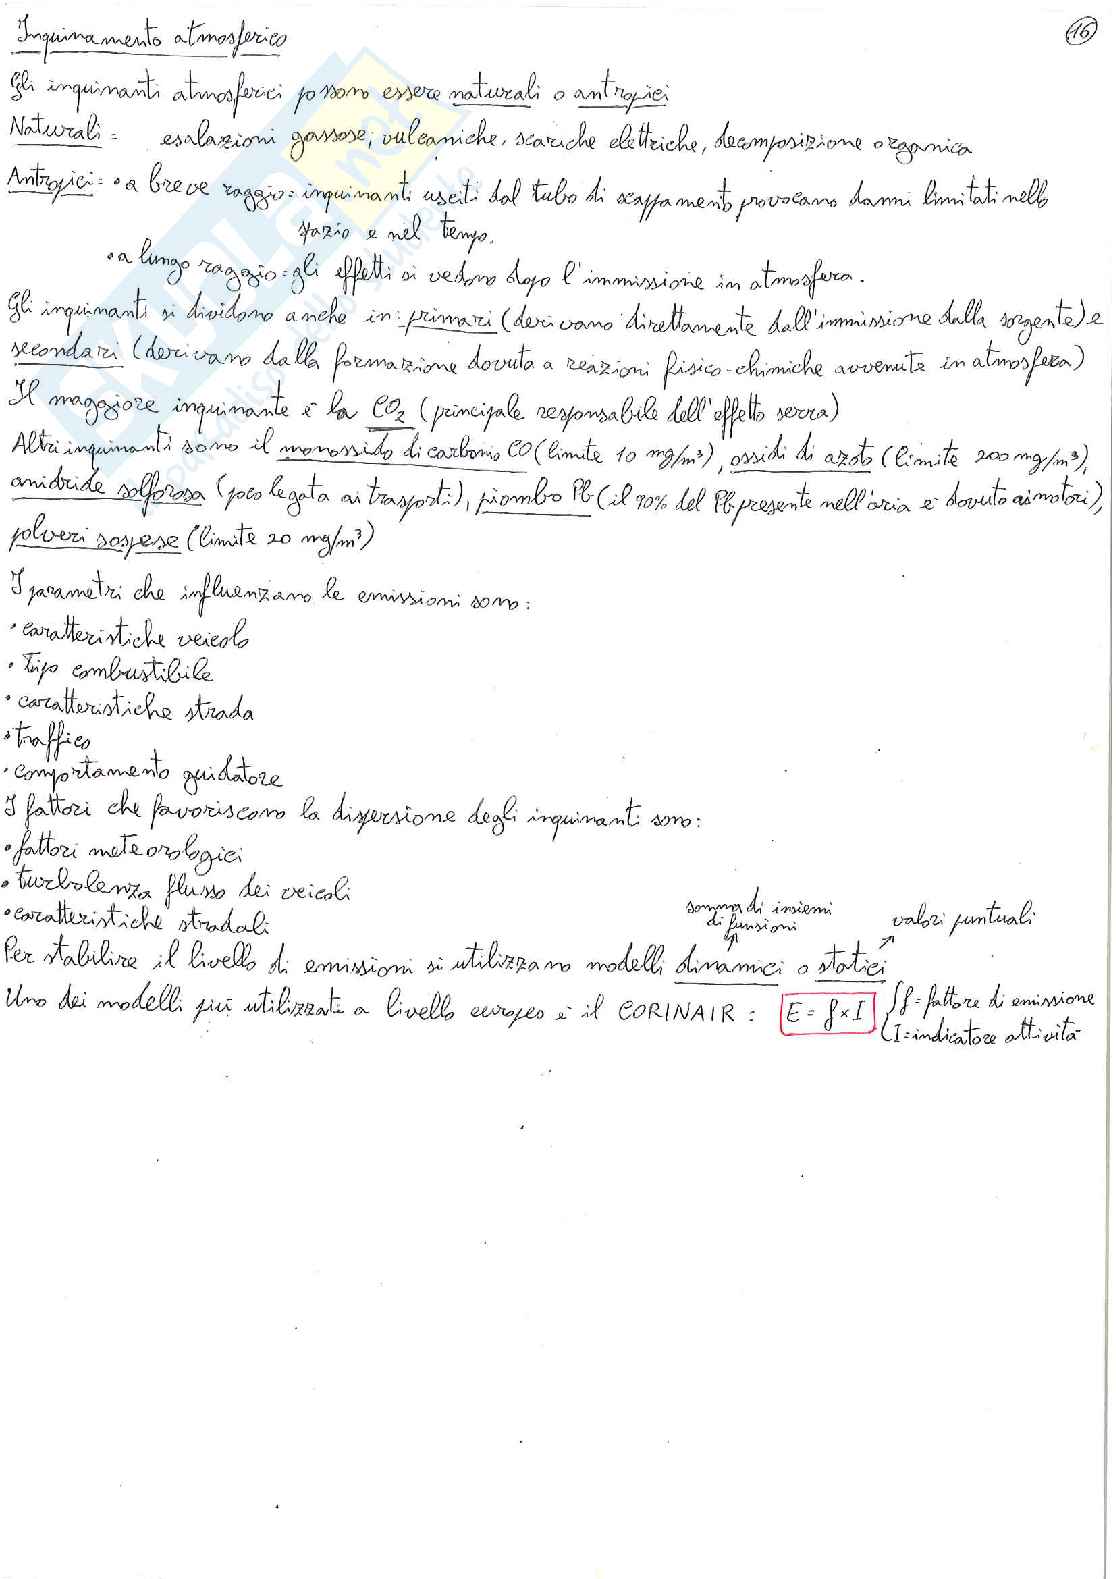 16
Inquinamento atmosferico
Gli inquinanti atmosferici possono essere naturali o antropici
Naturali = esalazioni gassose, vulcaniche, scariche elettriche, decomposizione organica
Antropici = • a breve raggio = inquinanti usciti dal tubo di scappamento provocano danni limitati nello
spazio e nel tempo.
• a lungo raggio = gli effetti si vedono dopo l'immissione in atmosfera.
Gli inquinanti si dividono anche in: primari (derivano direttamente dall'immissione dalla sorgente) e
secondari (derivano dalla formazione dovuta a reazioni fisico-chimiche avvenute in atmosfera)
Il maggiore inquinante è la CO₂ (principale responsabile dell'effetto serra)
Altri inquinanti sono il monossido di carbonio CO (limite 10 mg/m³), ossidi di azoto (limite 200 mg/m³),
anidride solforosa (poco legata ai trasporti), piombo Pb (il 90% del Pb presente nell'aria è dovuto ai motori),
polveri sospese (limite 20 mg/m³)
I parametri che influenzano le emissioni sono:
• caratteristiche veicolo
• tipo combustibile
• caratteristiche strada
• traffico
• comportamento guidatore
I fattori che favoriscono la dispersione degli inquinanti sono:
• fattori meteorologici
• turbolenza flusso dei veicoli
• caratteristiche stradali
somma di insiemi
di funzioni
valori puntuali
Per stabilire il livello di emissioni si utilizzano modelli dinamici o statici
Uno dei modelli più utilizzate a livello europeo è il CORINAIR : E = f × I { f = fattore di emissione
I = indicatore attività